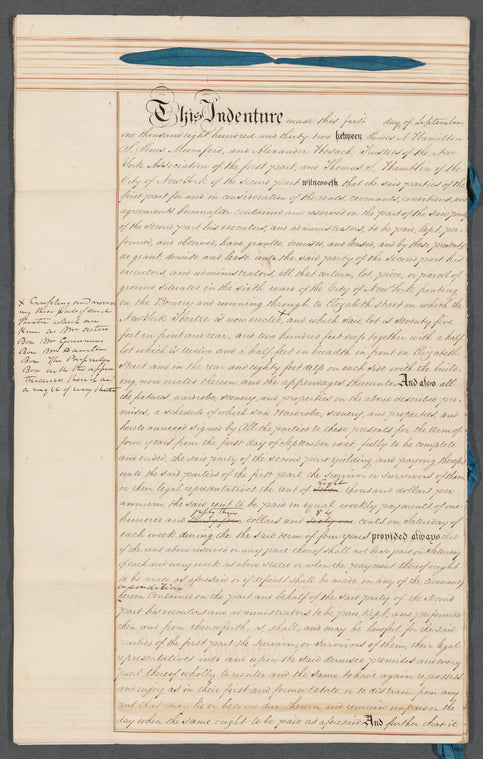 This Indenture made this first day of September
one thousand eight hundred and thirty two between James A Hamilton
Mumford, and Alexander Hosack Trustees of the New
York Association of the first part, and Thomas S. Hamblin of the
City of New York of the Second part witnesseth that the said parties of the
first part for and in consideration of the rents, covenants, conditions, and
agreements hereinafter contained and reserved on the part of the said party
of the second part his executors, and administrators, to be paid, kept, per
formed, and observed, have granted, demised, and leased, and by these presents
do grant, demise and lease unto the said party of the Second part his
executors and administrators, all that certain lot, piece, or parcel of
ground situated in the Sixth ward of the City of New York fronting
on the Bowery and running through to Elizabeth Street on which the
New York Theatre is now erected, and which said lot is seventy five
feet in front and rear, and two hundred feet deep together with a half
lot which is twelve and a half feet in breadth in front on Elizabeth
Street and in the rear and eighty feet deep on each side with the build-
ing, now erected thereon, and the appendages thereunto And also all
the fixtures, wardrobe, scenery, and properties on the above described pre-
mises, a schedule of which said Wardrobe, scenery, and properties, and
hereto annexed signed by All the parties to these presents for the term of
four years from the first day of September next, fully to be complete
and ended, the said party of the second part yielding and paying therefor
unto the said parties of the first part the survivor or survivors of them
or their legal representatives the rent of eight thousand dollars per
annum, the said rent to be paid in equal weekly payments of one
hundred and fifty three dollars and 84 cents on Saturday of
each week during the the said term of four years provided always that
if the rent above reserved or any part thereof shall not be so paid on Saturday
of each and every week as above stated or when the payment thereof ought
to be made as aforesaid or if default shall be made in any of the Covenants
or conditions
herein Contained on the part and behalf of the said party of the Second
part his executors and administrators to be paid, Kept, and performed
then and from thenceforth, it shall, and may be lawful for the said
parties of the first part the Survivor, or Survivors of them, their legal
representatives into and upon the said demised premises and every
part thereof wholly to reenter and the Same to have again re possess
and enjoy as in their first and former Estate or to distrain for any
rent that may be or become due thereon and remain unpaid on the
day when the same ought to be paid as aforesaid And further that it
x Excepting and reserv
ing those parts of said
theatre which are
Know as Mr Astor
Box Mr Gunnine
Box Mr Hamilton
Box
Box with the appur
tenances